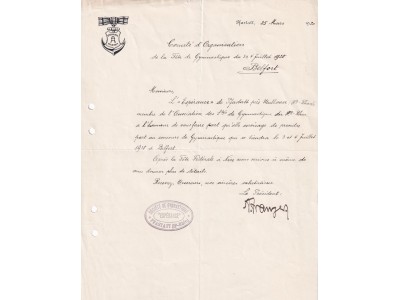 25 Mars
Comité d'Organisation
de la Fête de Gymnastique du 5 & 6 Juillet
Belfort
Messieurs,
L'« Espérance » de près Mulhouse (Ht Rhin)
membre de l'Association des Stés de Gymnastique du Ht Rhin
à l'honneur de vous faire part qu'elle envisage de prendre
part au concours de Gymnastique qui se tiendra le 5 et 6 juillet
à Belfort
Après la Fête Fédérale à Nice nous serons à même de
vous donner plus de détails.
Recevez, Messieurs, nos sincères salutations
Le Président